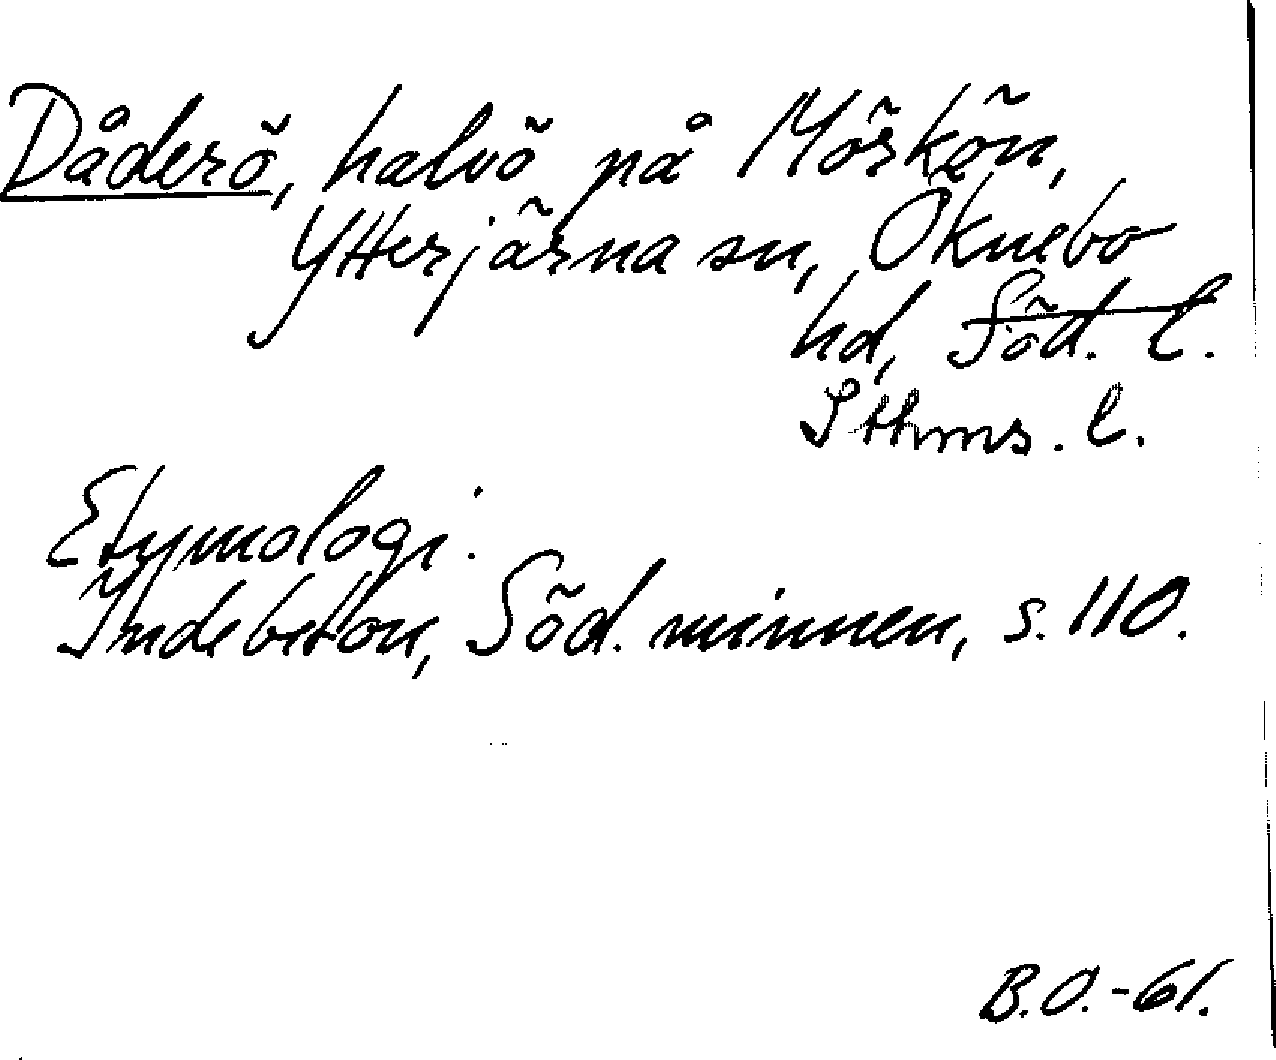 Dåderö, halvö på Mörkön,
Ytterjärna sn, Öknebo
hd, Söd. l.
Sthms. l.
Etymologi:
Indebetou, Söd. minnen, s. 110.
B.O.-61.